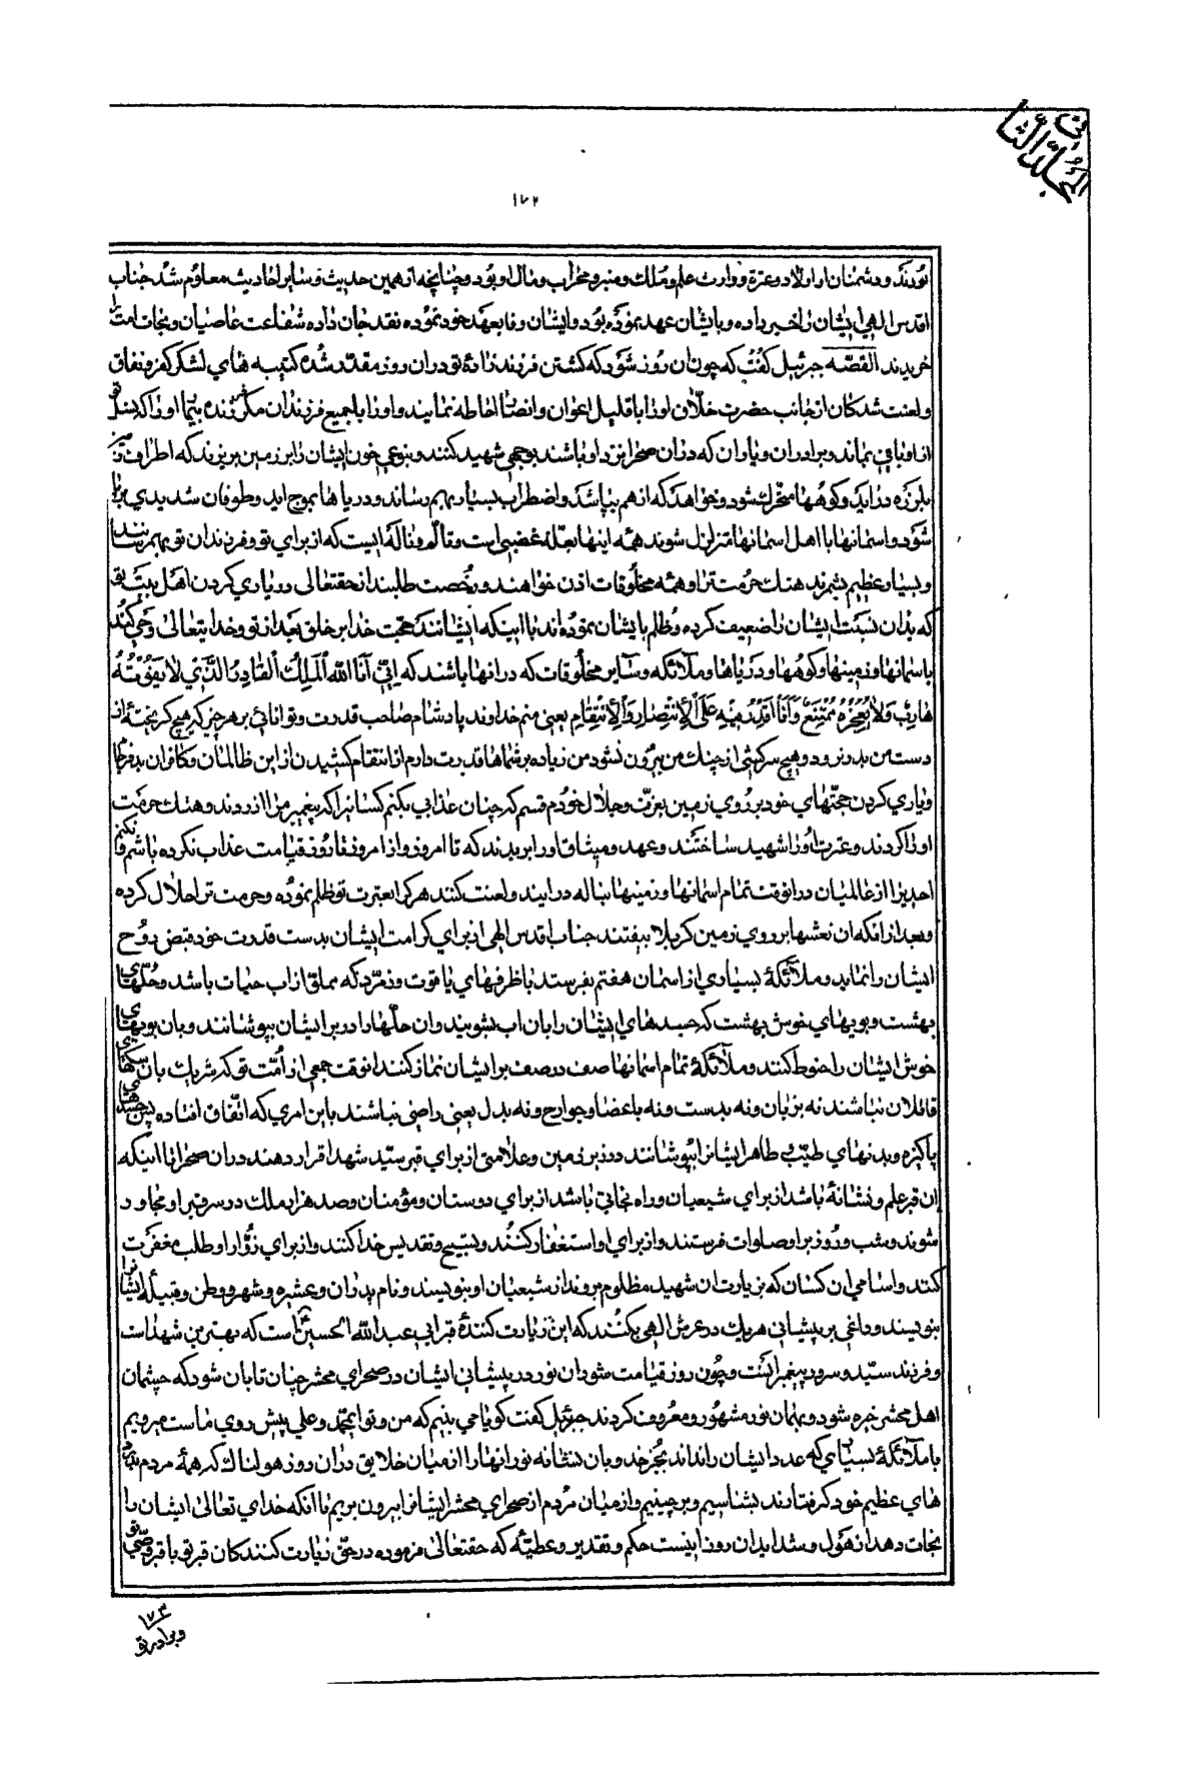 المجلد الثانی
۱۷۲
بودند و دشمنان او اولاد و عترة و وارث علم و ملک و منبر و محراب و مال او بود و چنانچه از همین حدیث و سایر احادیث معلوم شد جناب
اقدس الهی ایشان را خبر داده و با ایشان عهد نموده بود و ایشان وفا بعهد خود نموده نقد جان داده شفاعت عاصیان و نجات امت را
خریدند القصّه جبرئیل گفت که چون ان روز شود که کشتن فرزند زادهٔ تو در ان روز مقدّر شده کتیبه های لشکر کفر و نفاق
و لعنت شدگان از جانب حضرت خلّاق او را با قلیل اعوان و انصار احاطه نمایند و او را با جمیع فرزندان مگر زنده بیمار او را که نسل تو
از او باقی بماند و برادران و یاران که در ان صحرا نزد او باشند بوجهی شهید کنند و بنوعی خون ایشان را بر زمین بریزند که اطراف زمین
بلرزه در اید و کوهها متحرک شود و خواهد که از هم بپاشد و اضطراب بسیار بهم رساند و دریا ها بموج اید و طوفان شدیدی برپا
شود و اسمانها با اهل اسمانها متزلزل شوند همه اینها بعلّه غضبی است و تألم و نالهٔ ایست که از برای تو و فرزندان تو بهم رسانند
و بسیار عظیم شمرند هتک حرمت ترا و همه مخلوقات اذن خواهند و رخصت طلبند از حقتعالی در یاری کردن اهل بیت تو
که بدان نسبت ایشان را ضعیف کرده و ظلم بایشان نموده اند با اینکه ایشانند حجت خدا بر خلق بعد از تو و خدا یتعالی وحی کند
باسمانها و زمینها و کوهها و دریاها و ملائکه و سایر مخلوقات که در انها باشند که اِنّی اَنَا اللهُ الْمَلِكُ الْقَادِرُ الَّذي لا یَفُوتُهُ
هارِبٌ وَلا یُعْجِزُهُ مُمْتَنِعٌ وَاَنَا اَقْدَرُ فیهِ عَلَی الاِنْتِصارِ وَالاِنْتِقامِ یعنی منم خداوند پادشاه صاحب قدرت و توانائی بر هر چیز که هیچ گریخته از
دست من بدر نرود و هیچ سرکشی از چنگ من بیرون نشود من زیاده بر شماها قدرت دارم از انتقام کشیدن از این ظالمان و کافران بدفرجام
و یاری کردن حجّتهای خود بر روی زمین بعزّت و جلال خودم قسم که چنان عذابی بکنم کسانیرا که پیغمبر مرا ازردند و هتک حرمت
او را کردند و عترت او را شهید ساختند و عهد و میثاق او را بریدند که تا امروز و از امروز تا روز قیامت عذاب نکرده باشم و نکنم
احدیرا از عالمیان در انوقت تمام اسمانها و زمینها بناله در ایند و لعنت کنند هر که را بعترت تو ظلم نموده و حرمت ترا حلال کرده
و بعد از انکه ان نعشها بر روی زمین کربلا بیفتند جناب اقدس الهی از برای کرامت ایشان بدست قدرت خود قبض روح
ایشان را نماید و ملائکهٔ بسیاری از اسمان هفتم بفرستد با ظرفهای یاقوت و زمرّد که مملو از اب حیات باشد و حلّهای
بهشت و بویهای خوش بهشت که جسدهای ایشان را بان اب بشویند و ان حلّها را در بر ایشان بپوشانند و بان بویهای
خوش ایشان را حنوط کنند و ملائکهٔ تمام اسمانها صف در صف بر ایشان نماز کنند انوقت جمعی از اُمّت تو که شریک بان
قاتلان نباشند نه بزبان و نه بدست و نه باعضا و جوارح و نه بدل یعنی راضی نباشند باین امری که اتّفاق افتاده پس
پاکیزه و بدنهای طیّب و طاهر ایشانرا بپوشانند در زیر زمین و علامتی از برای قبر سیّد شهدا قرار دهند در ان صحرا تا اینکه
ان قبر علم و نشانهٔ باشد از برای شیعیان و راه نجاتی باشد از برای دوستان و مؤمنان و صد هزار ملک در سر قبر او مجاور
شوند و شب و روز بر او صلوات فرستند و از برای او استغفار کنند و تسبیح و تقدیس خدا کنند و از برای زوّار او طلب مغفرت
کنند و اسامی ان کسان که بزیارت ان شهید مظلوم بروند از شیعیان او بنویسند و نام پدران و عشیره و شهر و وطن و قبیله ایشانرا
بنویسند و داغی بر پیشانی هر یک در عرش الهی بکنند که این زیارت کنندهٔ قبر ابی عبد الله الحسین است که بهترین شهداست
و فرزند سیّد و سرور پیغمبرانست و چون روز قیامت شود ان نور در پیشانی ایشان در صحرای محشر چنان تابان شود که چشمان
اهل محشر خیره شود و بهمان نور مشهور و معروف گردند جبرئیل گفت گویا می بینم که من و تو ایمحمّد و علی پیش روی ماست میرویم
با ملائکهٔ بسیاری که عدد ایشان را نداند بجز خدا و بان نشانه نور انها را از میان خلایق در ان روز هولناک که همهٔ مردم
های عظیم خود گرفتارند بشناسیم و برچینیم و از میان مردم از صحرای محشر ایشانرا بیرون بریم تا انکه خدای تعالی ایشان را
نجات دهد از هول و شداید ان روز اینست حکم و تقدیر و عطیّه که حقتعالی فرموده در حق زیارت کنندگان قبر تو یا قبر وصّی تو
۱۷۳
و برادر تو